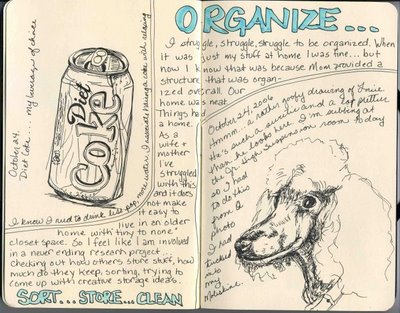 ORGANIZE...
October 24...
Diet Coke... my beverage of choice
Diet
Coke
I know I need to drink less pop, more water. I associate having a coke with relaxing
I struggle, struggle, struggle to be organized. When
it was just my stuff at home I was fine... but
now I know that was because Mom provided a
structure that was organ-
ized overall. Our
home was neat.
Things had
a home.
As a
wife +
mother
I've
struggled
with this
and it does
not make
it easy to
live in an older
home with tiny to none
closet space. So I feel like I am involved
in a never ending research project...
checking out how others store stuff, how
much do they keep, sorting, trying to
come up with creative storage ideas.
SORT... STORE... CLEAN
October 24, 2006
Hmmm... a rather goofy drawing of
He's such a cutie and a lot prettier
than he looks here. I'm subbing at
the Jr. High suspension room today
so I had
to do this
from a
photo
I had
tucked
into
my
Moleskine.